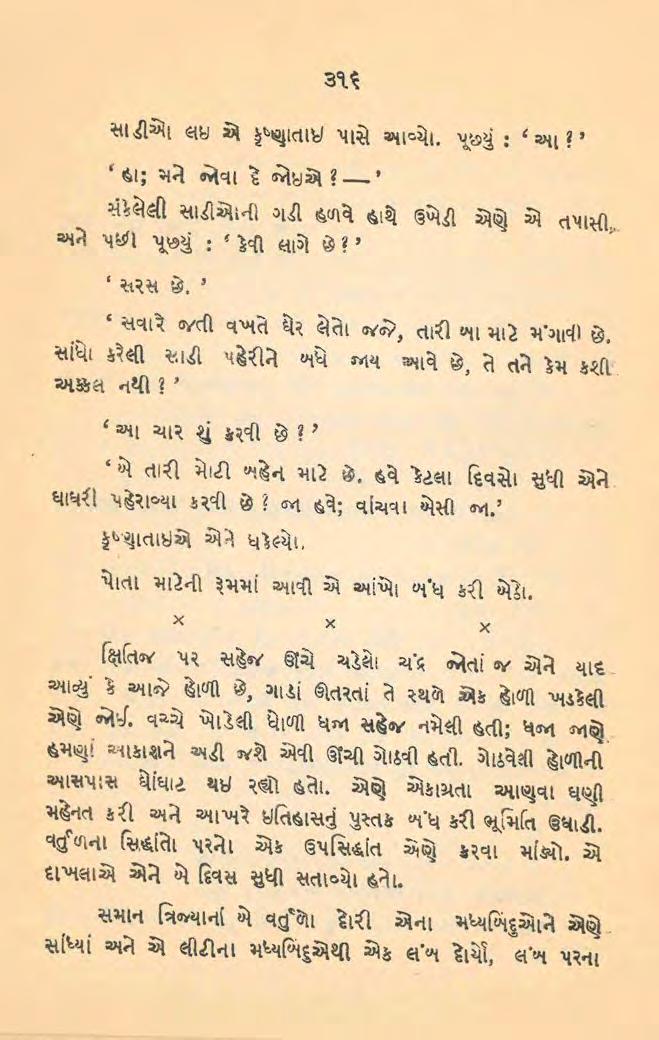 ૩૧૬
સાડીઓ લઇ એ કૃષ્ણાતાઇ પાસે આવ્યો. પૂછયું : ‘ આ ? ’
‘ હા; મને જોવા દે જોઇએ ? — ’
સંકેલેલી સાડીઓની ગડી હળવે હાથે ઉખેડી એણે એ તપાસી,
અને પછી પૂછયું : ‘ કેવી લાગે છે ? ’
‘ સરસ છે. ’
‘ સવારે જતી વખતે ઘેર લેતો જજે, તારી બા માટે મંગાવી છે.
સાંધો કરેલી સાડી પહેરીને બધે જાય આવે છે, તે તને કેમ કશી
અક્કલ નથી ? ’
‘ આ ચાર શું કરવી છે ? ’
‘ એ તારી મોટી બહેન માટે છે. હવે કેટલા દિવસો સુધી એને
ઘાઘરી પહેરાવ્યા કરવી છે ? જા હવે; વાંચવા બેસી જા.’
કૃષ્ણાતાઇએ એને ધકેલ્યો.
પોતા માટેની રૂમમાં આવી એ આંખો બંધ કરી બેઠો.
× × ×
ક્ષિતિજ પર સહેજ ઊંચે ચડેલો ચંદ્ર જોતાં જ એને યાદ
આવ્યું કે આજે હોળી છે, ગાડાં ઊતરતાં તે સ્થળે એક હોળી ખડકેલી
એણે જોઈ. વચ્ચે ખોડેલી ધોળી ધજા સહેજ નમેલી હતી; ધજા જાણે
હમણાં આકાશને અડી જશે એવી ઊંચી ગોઠવી હતી. ગોઠવેલી હોળીની
આસપાસ ઘોંઘાટ થઇ રહ્યો હતો. એણે એકાગ્રતા આણવા ઘણી
મહેનત કરી અને આખરે ઇતિહાસનું પુસ્તક બંધ કરી ભૂમિતિ ઉઘાડી.
વર્તુળના સિદ્ધાંતો પરનો એક ઉપસિદ્ધાંત એણે કરવા માંડ્યો. એ
દાખલાએ એને બે દિવસ સુધી સતાવ્યો હતો.
સમાન ત્રિજ્યાનાં બે વર્તુળો દોરી એના મધ્યબિંદુઓને એણે
સાંધ્યાં અને એ લીટીના મધ્યબિંદુએથી એક લંબ દોર્યો, લંબ પરના